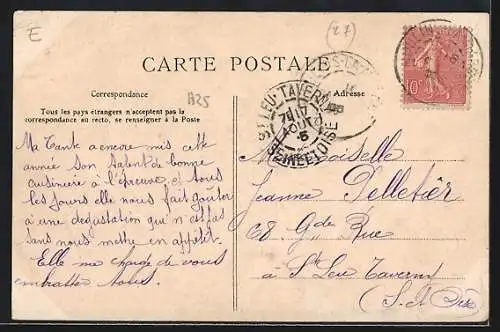 E
(27)
CARTE POSTALE
A25
Correspondance
Adresse
Tous les pays étrangers n'acceptent pas la
correspondance au recto, se renseigner à la Poste
ST LEU-TAVERNY
AOUT
SEINE ET OISE
10
Ma Tante a encore mis cette
année son talent de bonne
cuisinière à l'épreuve et tous
les jours elle nous fait goûter
à une degustation qui n'est pas
sans nous mettre en appétit.
Elle me charge de vous
embrasser tous.
Mademoiselle
Jeanne Pelletier
68 Gde Rue
à St Leu Taverny
(S. et Oise)